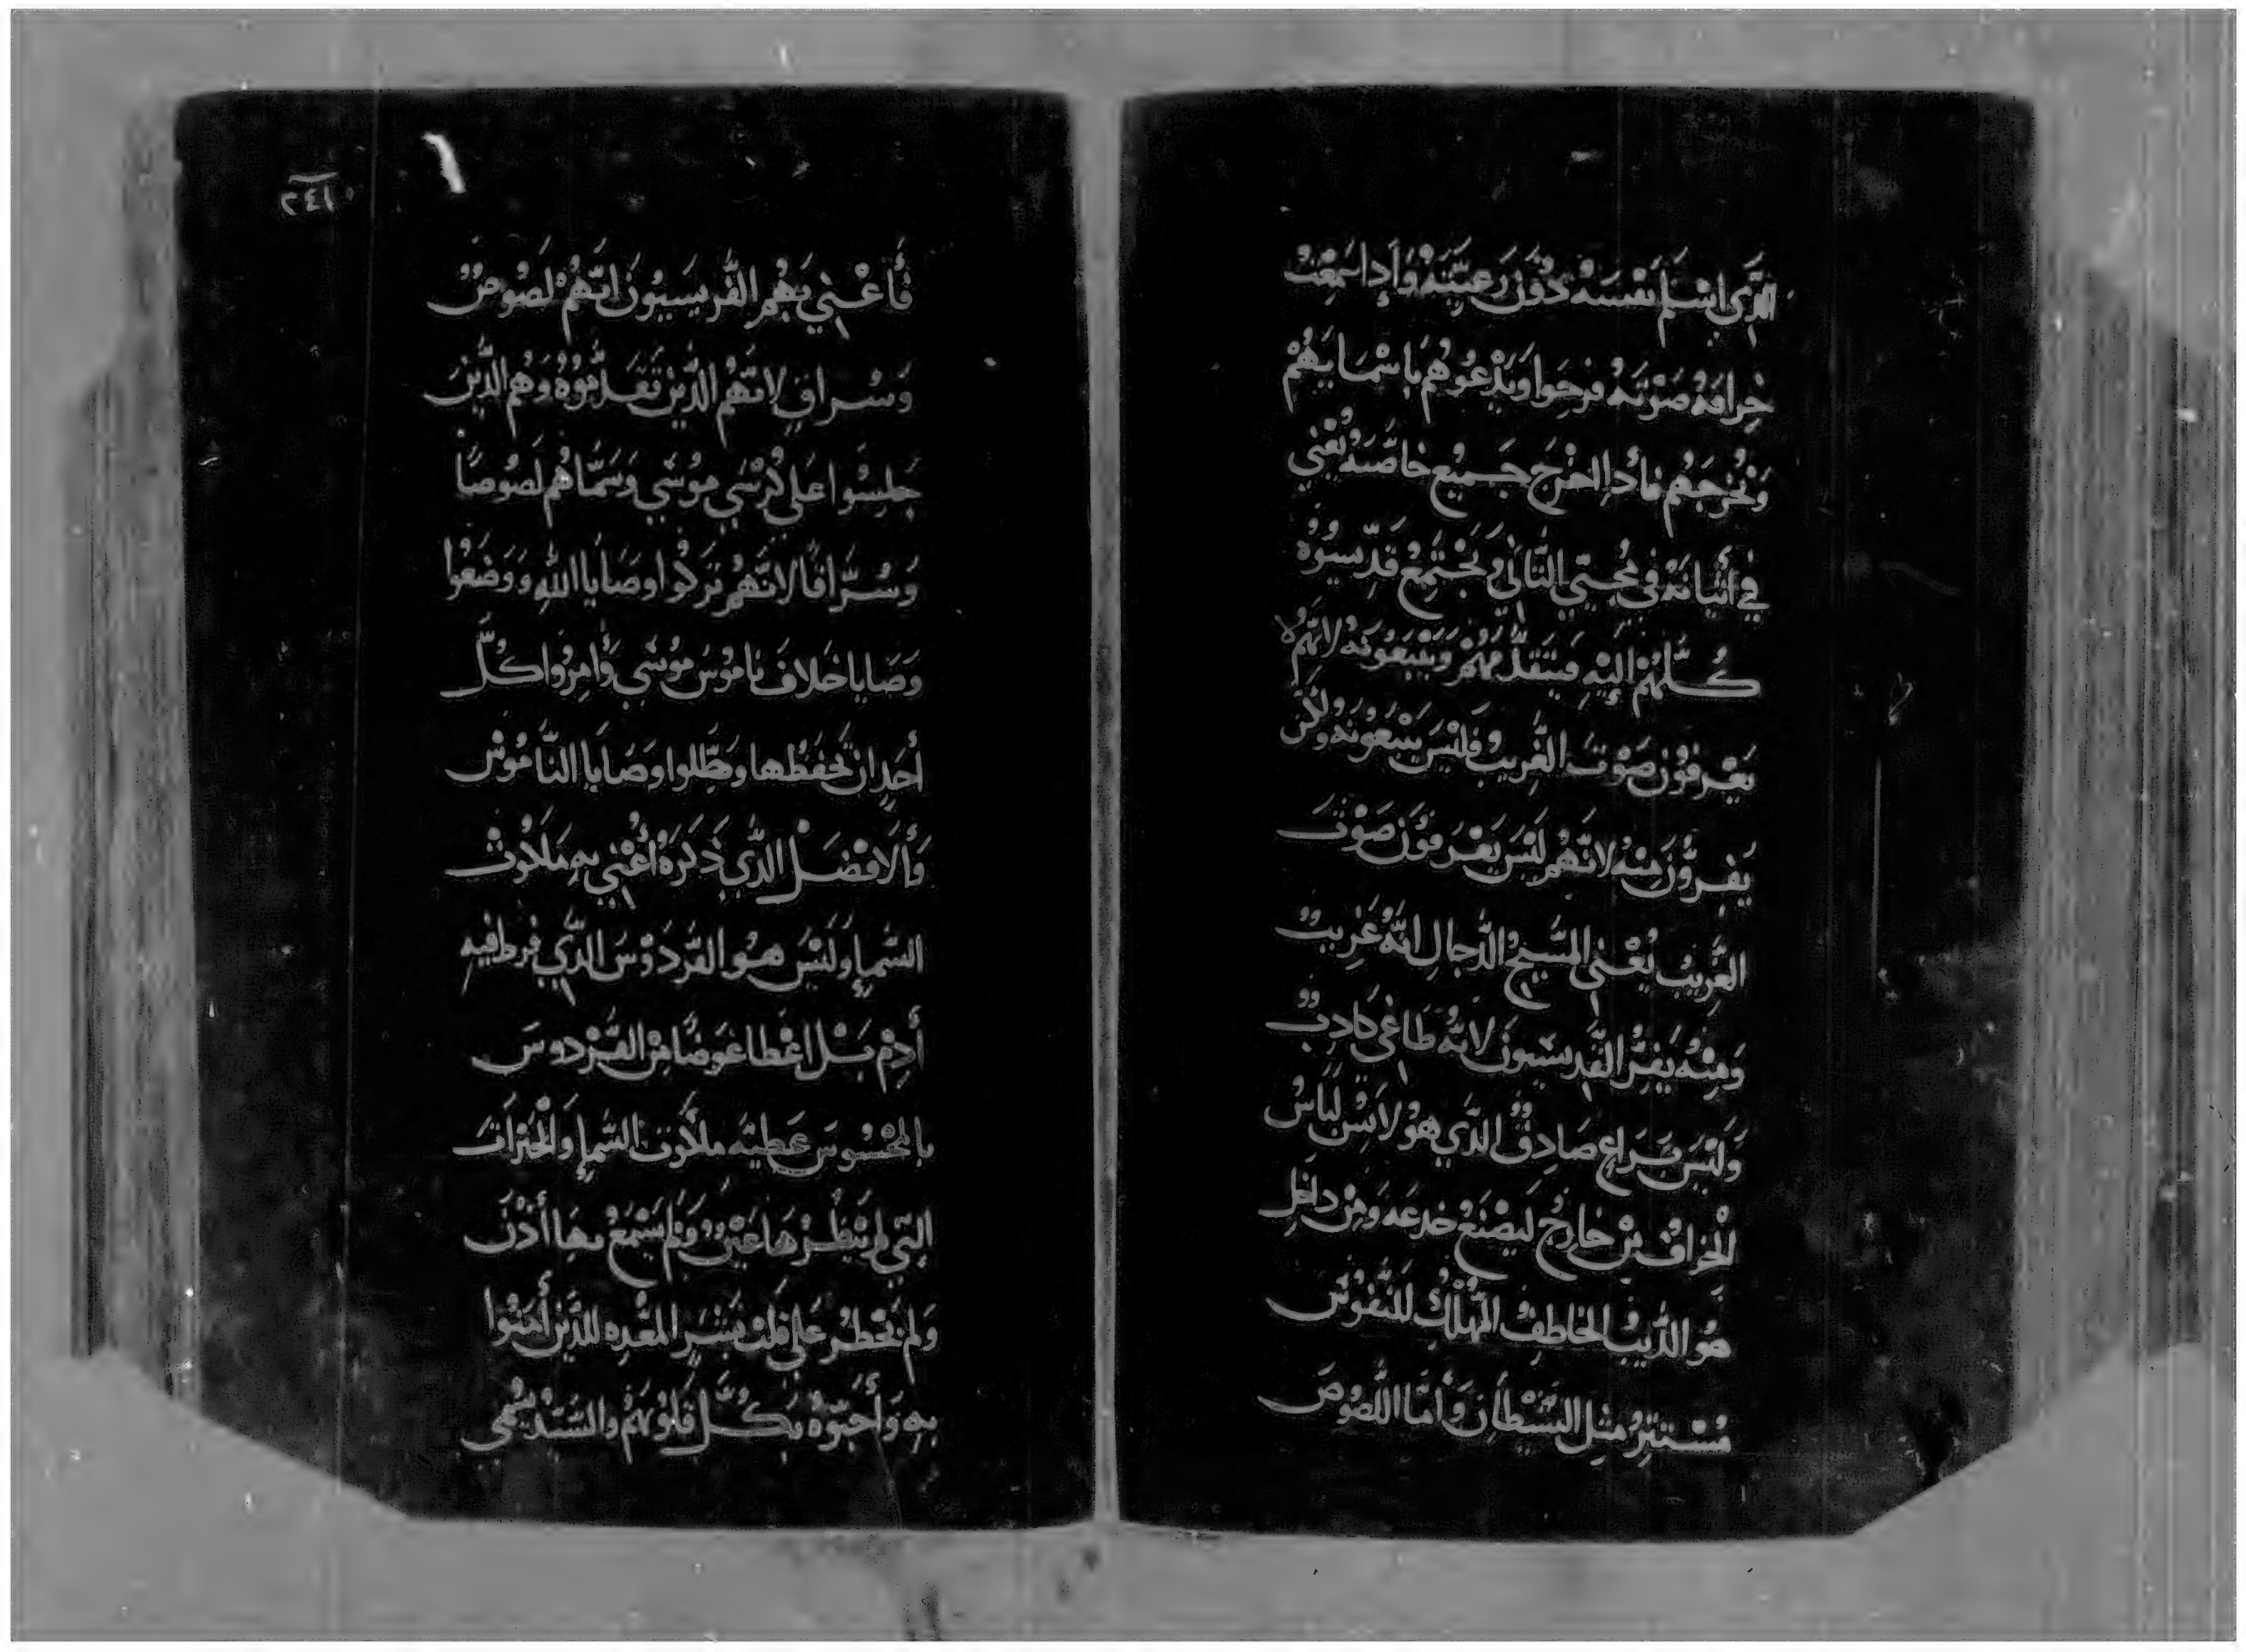 الَّذِي اسْلَمَ نَفْسَهُ دُوْنَ رَعِيَّتَهُ وَإِدا سَمِعَتْ
خِرافَهُ صَوْتَهُ فرحَوا وَيَدْعُوهُم بَاسْمَايِهُمْ
وَنُخْرجَهُم فادِا اخرَجَ جَمِيْع خاصَّتَهُ يُعْنِي
فِي أتيانَهُ فِي مجِيّي التَّانِي وَتَجْتَمِعُ قدِّسِيُوْهُ
كُلَّهُمْ إِليْهِ فيَتَقدَّمهُمْ وَيَتبَعُونَهُ لانَّهُم لا
يَعْرفوُن صَوْت الغَّرِيبُ فليْسَ يتبَعُونه ولاكن
يَفِرُّونَ مِنْهُ لانَّهُم لَيْسَ يَعْرَفوُن صَوْتَ
الغَّرِيبُ يُعْنِي المسَيحُ الدَّجالِ انَّهُ غَرِيبٌ
وَمِنْهُ يَفِرُّ القدِيسيونَ لانَّهُ طَاغِي كادِبٌ
وَلَيْسَ برَاعٍ صَادِقٌ الدَّي هوُ لابِسْ لبَاسُ
الخرافُ مِنْ خارِجُ ليَصْنَعُ خدعَه وَمِنْ داخِلِ
هوُ الدِّيبُ الخاطِفُ المُهْلِكُ للنَّفُوْسِ
مُسْتَتِرُ مثِل الشَّيْطَانِ وَأمَّا اللَّصُوصَ
٢٤١
فأعْنِي بَهُم الفَّرِيسِيوُنَ انَّهُمْ لَصُوصٌ
وَسُراقٍ لانَّهُمْ الدَّيْنَ تَقَدَّموُهُ وَهُم الدَّيْنَ
جَلِسُوا عَلي كُرْسَيِ موُسَي وَسَمَّاهُم لَصُوصًا
وَسُرَّاقًا لانَّهُمْ تَرَكُوا وصَايا اللهِ وَوَضَعُوا
وَصَايا خلافَ نامُوسَ موُسَي وَأمِرُوا كُلَّ
أحَدٍ ان يَحْفَظهَا وعَطِّلوا وصَايَا النَّامُوسُ
وَالافضَل الدَّي ذكرَهُ أُعْنِي بهِ مَلَكُوتْ
السَّماءِ وَلَيْسَ هوُ الفَّردَوْسَ الدَّي فرط فيه
أدِمْ بَلْ اعْطا عَوضًا مِنْ الفَّرْدوسَ
بالمَحْسُوسَ عَطيَّه ملكوُت السَّماءِ وَالْخَيْراتَ
التَّي لم يَنظُرْهَا عَيْنٌ وَلمْ يَسْمَعُ بهَا أُذْنَ
وَلم يَخْطرُ عَلي قلبْ بَشَرٍ المعَّده للَّدَيْنَ أمَنُوا
بهِ وَأحَبّوُهُ بكُلِّ قُلوُبَهُمْ والسَّيِّدُ يُسَمّي